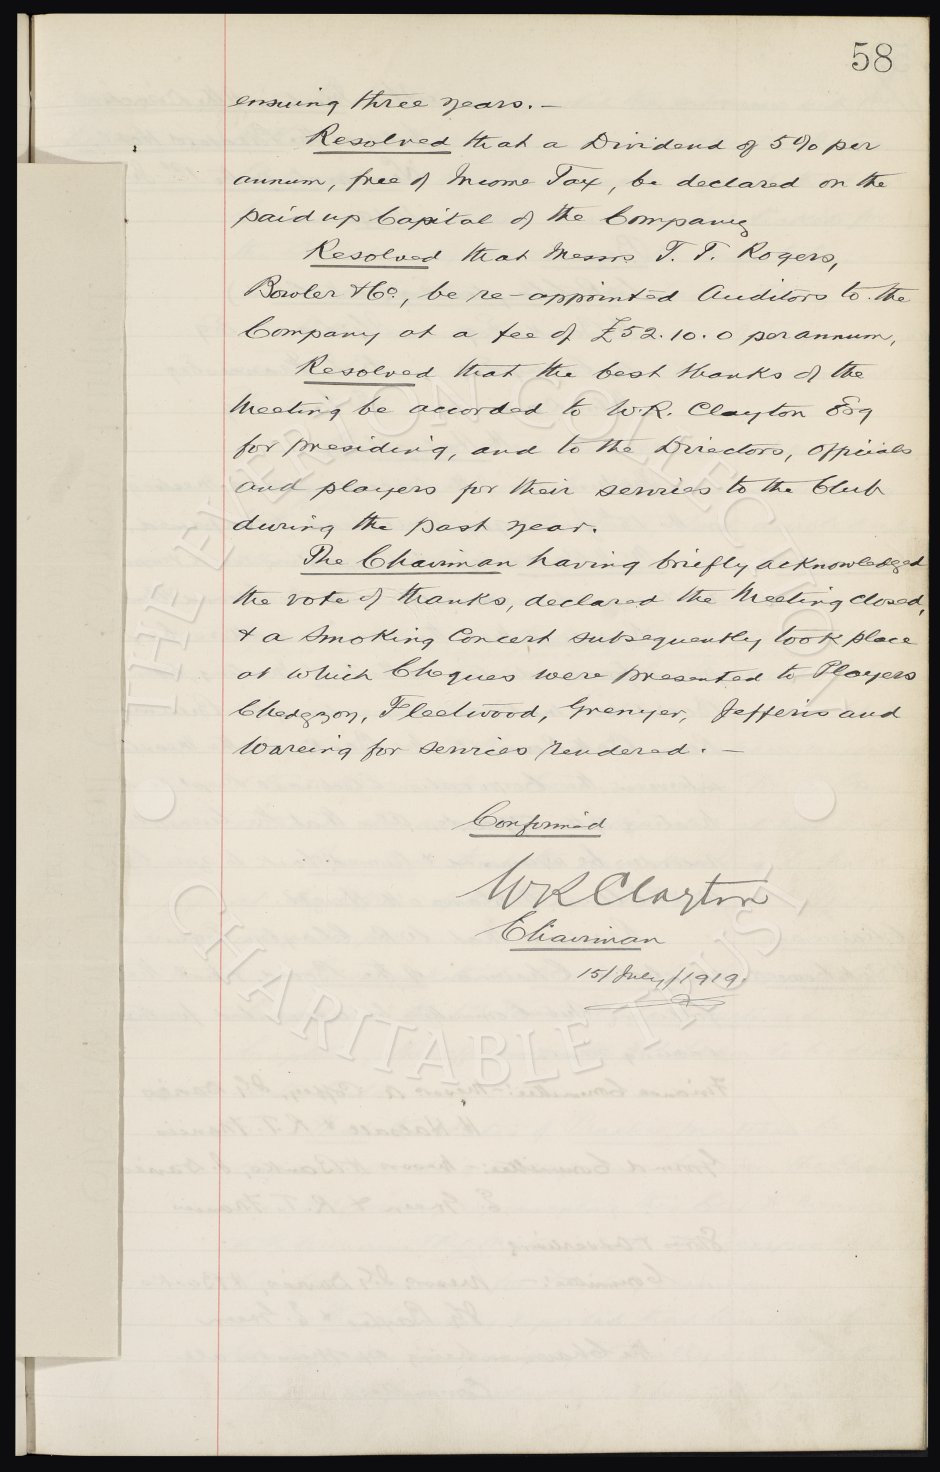 58
ensuing three years. —
Resolved that a Dividend of 5% per
annum, free of Income Tax, be declared on the
paid up Capital of the Company
Resolved that Messrs T. T. Rogers,
Bowler & Co, be re-appointed Auditors to the
Company at a fee of £52.10.0 per annum,
Resolved that the best thanks of the
Meeting be accorded to W.R. Clayton Esq
for presiding, and to the Directors, Officials
and players for their services to the Club
during the past year.
The Chairman having briefly acknowledged
the vote of thanks, declared the Meeting closed,
& a Smoking Concert subsequently took place
at which Cheques were presented to Players
Chedgzoy, Fleetwood, Grenyer, Jefferis and
Wareing for services rendered. —
Confirmed
WR Clayton
Chairman
15/July/1919.
THE EVERTON COLLECTION
CHARITABLE TRUST